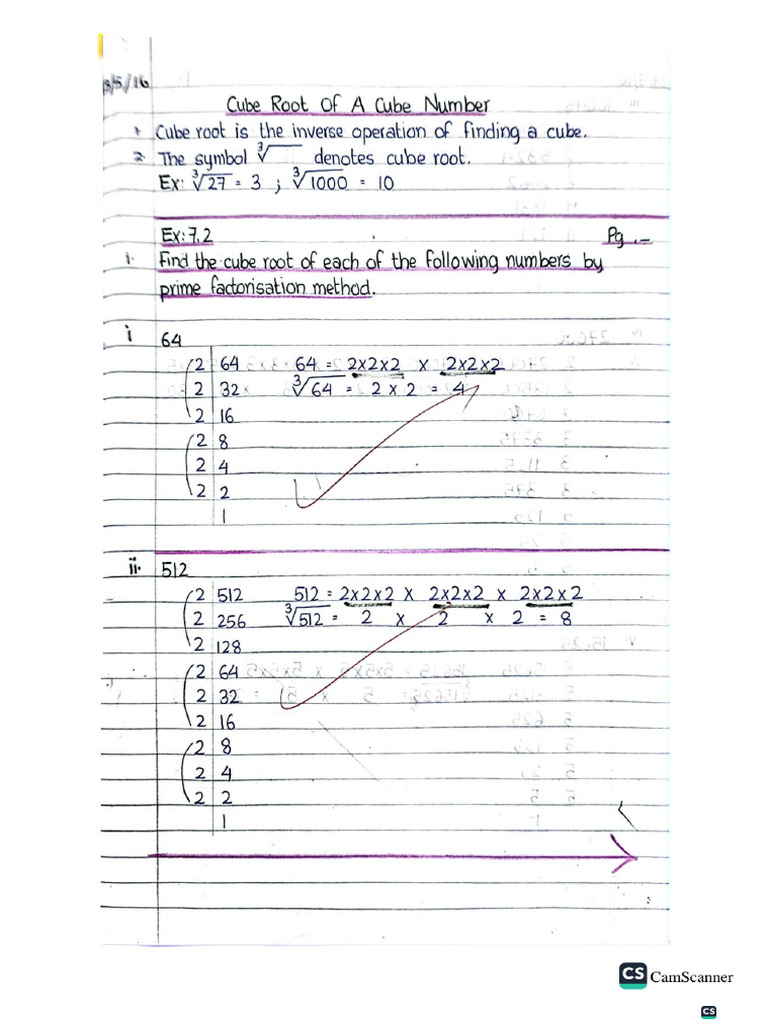 /5/16
Cube Root Of A Cube Number
1. Cube root is the inverse operation of finding a cube.
2. The symbol ∛ denotes cube root.
Ex: ∛27 = 3 ; ∛1000 = 10
Ex: 7.2 Pg .-
1. Find the cube root of each of the following numbers by
prime factorisation method.
i 64
2 64 64 = 2x2x2 x 2x2x2
2 32 ∛64 = 2 x 2 = 4
2 16
2 8
2 4
2 2
1
ii. 512
2 512 512 = 2x2x2 x 2x2x2 x 2x2x2
2 256 ∛512 = 2 x 2 x 2 = 8
2 128
2 64
2 32
2 16
2 8
2 4
2 2
1
CS CamScanner
CS